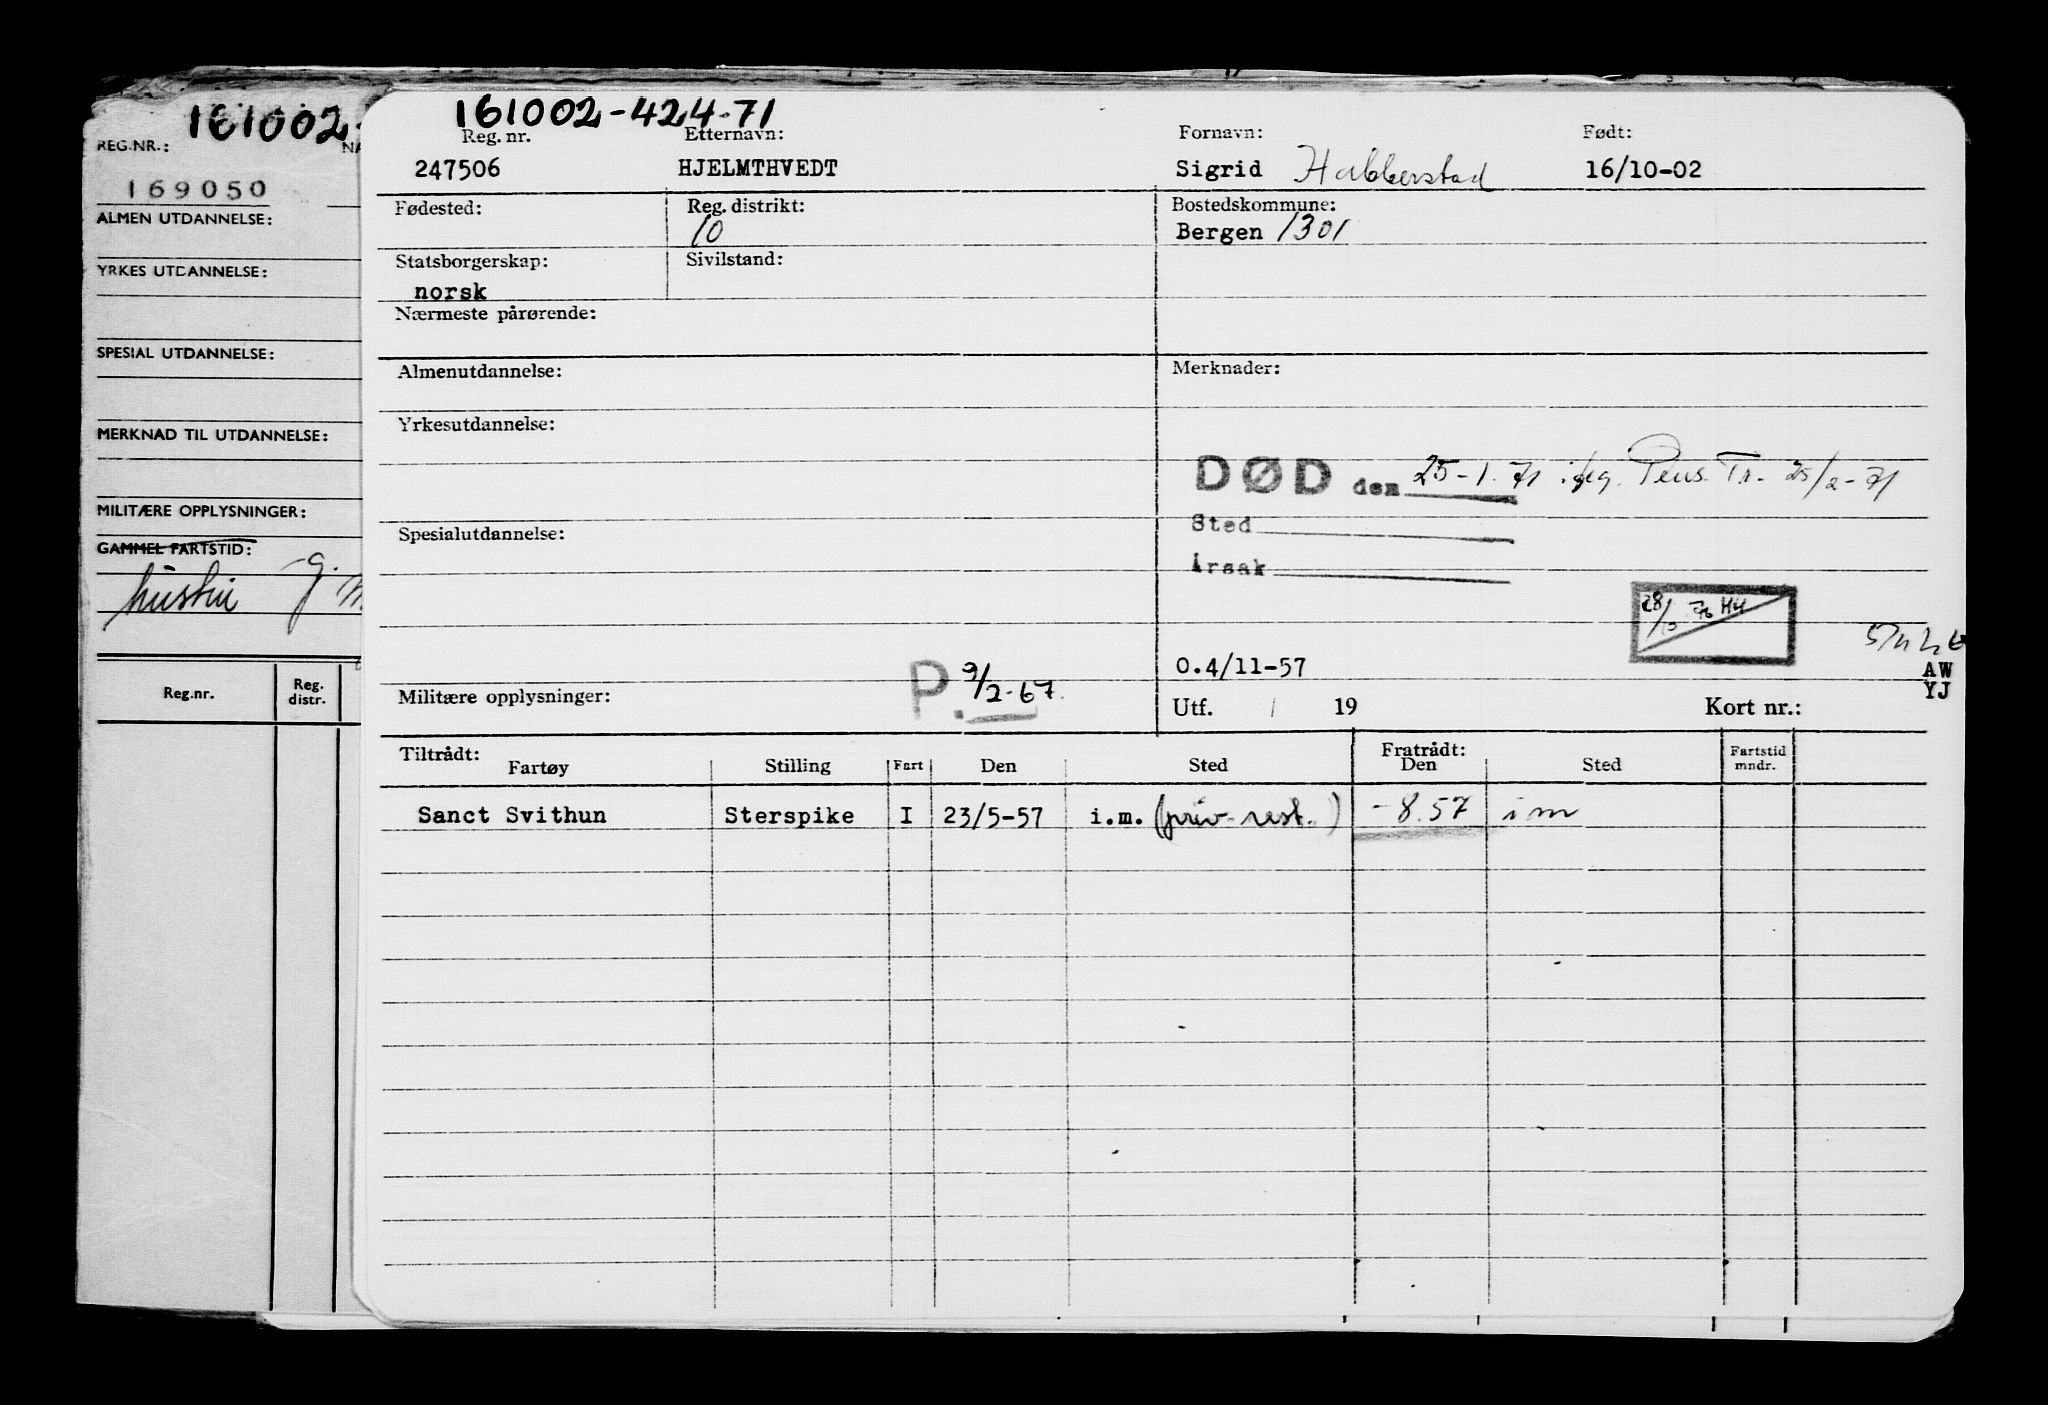 161002-
REG.NR.:
NA
169050
ALMEN UTDANNELSE:
YRKES UTDANNELSE:
SPESIAL UTDANNELSE:
MERKNAD TIL UTDANNELSE:
MILITÆRE OPPLYSNINGER:
GAMMEL FARTSTID:
Reg.nr.
Reg. distr.
161002-424-71
Reg. nr. Etternavn: Fornavn: Født:
247506 HJELMTHVEDT Sigrid Habberstad 16/10-02
Fødested: Reg. distrikt: Bostedskommune:
10 Bergen 1301
Statsborgerskap: Sivilstand:
norsk
Nærmeste pårørende:
Almenutdannelse: Merknader:
Yrkesutdannelse:
DØD den 25-1.71 Pens. Tr. 25/2-71
Sted
Spesialutdannelse:
Årsak
28/ 76 HH
O.4/11-57
AW
YJ
Militære opplysninger: P. 9/2-67.
Utf. / 19 Kort nr.:
Tiltrådt: Fratrådt: Fartstid mndr.
Fartøy Stilling Fart Den Sted Den Sted
Sanct Svithun Sterspike I 23/5-57 i.m. (priv. rest.) -8.57 i m